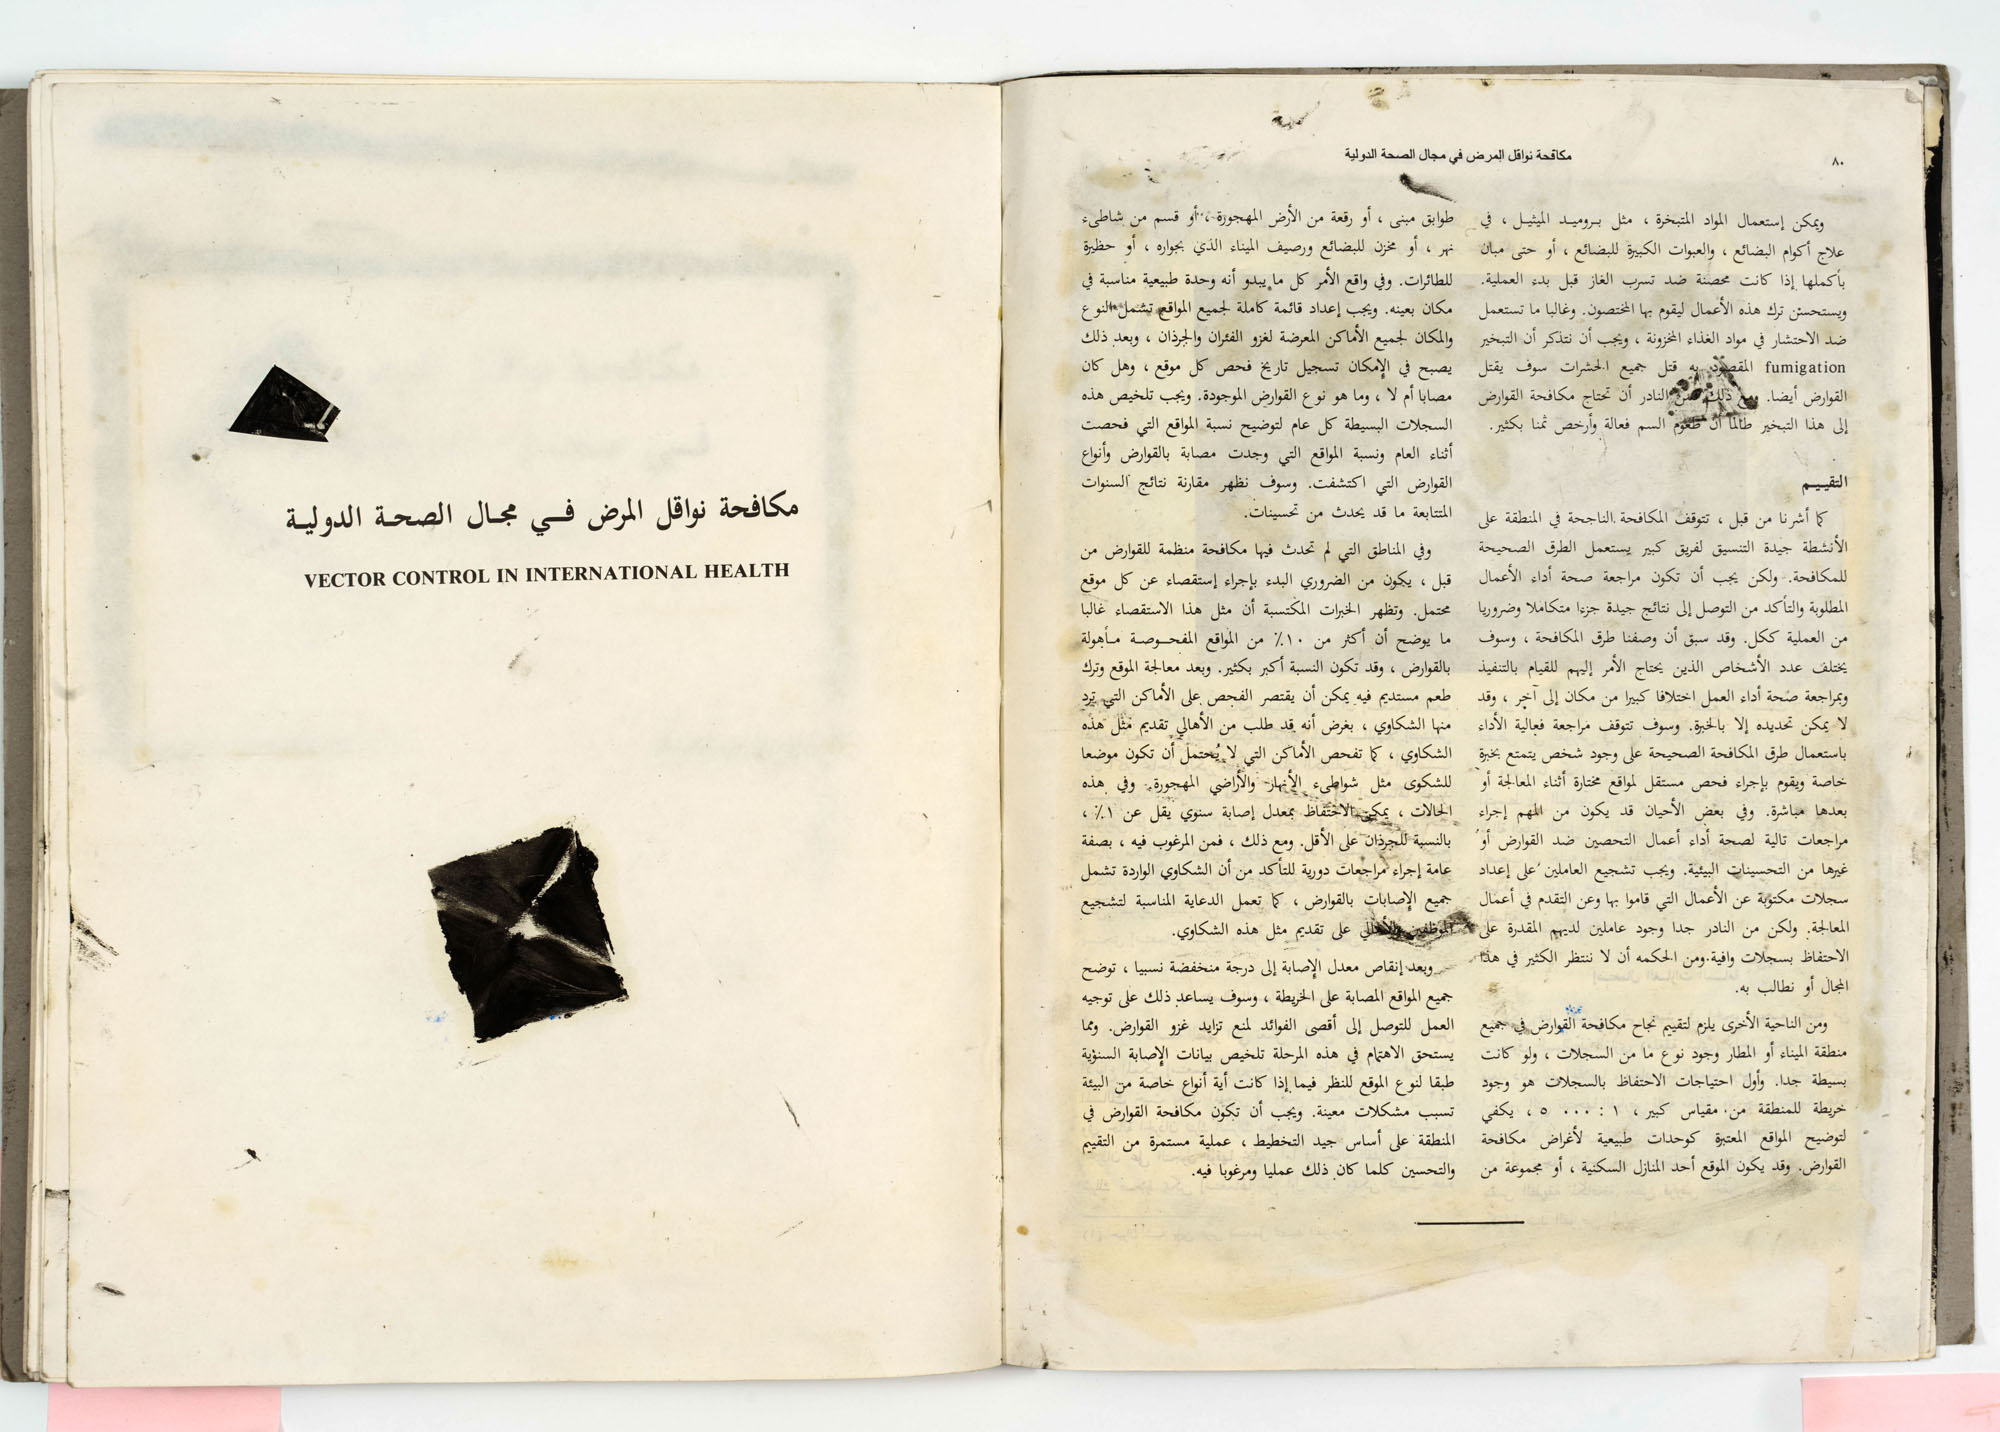 ٨٠
مكافحة نواقل المرض في مجال الصحة الدولية
ويمكن إستعمال المواد المتبخرة ، مثل بروميد الميثيل ، في
علاج أكوام البضائع ، والعبوات الكبيرة للبضائع ، أو حتى مبان
بأكملها إذا كانت محصنة ضد تسرب الغاز قبل بدء العملية.
ويستحسن ترك هذه الأعمال ليقوم بها المختصون. وغالبا ما تستعمل
ضد الاحتشار في مواد الغذاء المخزونة ، ويجب أن نتذكر أن التبخير
fumigation المقصود به قتل جميع الحشرات سوف يقتل
القوارض أيضا. ومع ذلك فمن النادر أن تحتاج مكافحة القوارض
إلى هذا التبخير طالما أن طعوم السم فعالة وأرخص ثمنا بكثير.
التقييم
كما أشرنا من قبل ، تتوقف المكافحة الناجحة في المنطقة على
الأنشطة جيدة التنسيق لفريق كبير يستعمل الطرق الصحيحة
للمكافحة. ولكن يجب أن تكون مراجعة صحة أداء الأعمال
المطلوبة والتأكد من التوصل إلى نتائج جيدة جزءا متكاملا وضروريا
من العملية ككل. وقد سبق أن وصفنا طرق المكافحة ، وسوف
يختلف عدد الأشخاص الذين يحتاج الأمر إليهم للقيام بالتنفيذ
وبمراجعة صحة أداء العمل اختلافا كبيرا من مكان إلى آخر ، وقد
لا يمكن تحديده إلا بالخبرة. وسوف تتوقف مراجعة فعالية الأداء
باستعمال طرق المكافحة الصحيحة على وجود شخص يتمتع بخبرة
خاصة ويقوم بإجراء فحص مستقل لمواقع مختارة أثناء المعالجة أو
بعدها مباشرة. وفي بعض الأحيان قد يكون من المهم إجراء
مراجعات تالية لصحة أداء أعمال التحصين ضد القوارض أو
غيرها من التحسينات البيئية. ويجب تشجيع العاملين على إعداد
سجلات مكتوبة عن الأعمال التي قاموا بها وعن التقدم في أعمال
المعالجة. ولكن من النادر جدا وجود عاملين لديهم المقدرة على
الاحتفاظ بسجلات وافية.ومن الحكمه أن لا ننتظر الكثير في هذا
المجال أو نطالب به.
ومن الناحية الأخرى يلزم لتقييم نجاح مكافحة القوارض في جميع
منطقة الميناء أو المطار وجود نوع ما من السجلات ، ولو كانت
بسيطة جدا. وأول احتياجات الاحتفاظ بالسجلات هو وجود
خريطة للمنطقة من مقياس كبير ، ١ : ٠٠٠ ٥ ، يكفي
لتوضيح المواقع المعتبرة كوحدات طبيعية لأغراض مكافحة
القوارض. وقد يكون الموقع أحد المنازل السكنية ، أو مجموعة من
طوابق مبنى ، أو رقعة من الأرض المهجورة ، أو قسم من شاطىء
نهر ، أو مخزن للبضائع ورصيف الميناء الذي بجواره ، أو حظيرة
للطائرات. وفي واقع الأمر كل ما يبدو أنه وحدة طبيعية مناسبة في
مكان بعينه. ويجب إعداد قائمة كاملة لجميع المواقع تشمل النوع
والمكان لجميع الأماكن المعرضة لغزو الفئران والجرذان ، وبعد ذلك
يصبح في الإمكان تسجيل تاريخ فحص كل موقع ، وهل كان
مصابا أم لا ، وما هو نوع القوارض الموجودة. ويجب تلخيص هذه
السجلات البسيطة كل عام لتوضيح نسبة المواقع التي فحصت
أثناء العام ونسبة المواقع التي وجدت مصابة بالقوارض وأنواع
القوارض التي اكتشفت. وسوف نظهر مقارنة نتائج السنوات
المتتابعة ما قد يحدث من تحسينات.
وفي المناطق التي لم تحدث فيها مكافحة منظمة للقوارض من
قبل ، يكون من الضروري البدء بإجراء إستقصاء عن كل موقع
محتمل. وتظهر الخبرات المكتسبة أن مثل هذا الاستقصاء غالبا
ما يوضح أن أكثر من ١٠٪ من المواقع المفحوصة مأهولة
بالقوارض ، وقد تكون النسبة أكبر بكثير. وبعد معالجة الموقع وترك
طعم مستديم فيه يمكن أن يقتصر الفحص على الأماكن التي ترد
منها الشكاوي ، بغرض أنه قد طلب من الأهالي تقديم مثل هذه
الشكاوي ، كما تفحص الأماكن التي لا يُحتمل أن تكون موضعا
للشكوى مثل شواطىء الأنهار والأراضي المهجورة. وفي هذه
الحالات ، يمكن الاحتفاظ بمعدل إصابة سنوي يقل عن ١٪ ،
بالنسبة للجرذان على الأقل. ومع ذلك ، فمن المرغوب فيه ، بصفة
عامة إجراء مراجعات دورية للتأكد من أن الشكاوي الواردة تشمل
جميع الإصابات بالقوارض ، كما تعمل الدعاية المناسبة لتشجيع
الموظفين والأهالي على تقديم مثل هذه الشكاوي.
وبعد إنقاص معدل الإصابة إلى درجة منخفضة نسبيا ، توضح
جميع المواقع المصابة على الخريطة ، وسوف يساعد ذلك على توجيه
العمل للتوصل إلى أقصى الفوائد لمنع تزايد غزو القوارض. ومما
يستحق الاهتمام في هذه المرحلة تلخيص بيانات الإصابة السنوية
طبقا لنوع الموقع للنظر فيما إذا كانت أية أنواع خاصة من البيئة
تسبب مشكلات معينة. ويجب أن تكون مكافحة القوارض في
المنطقة على أساس جيد التخطيط ، عملية مستمرة من التقييم
والتحسين كلما كان ذلك عمليا ومرغوبا فيه.
مكافحة نواقل المرض في مجال الصحة الدولية
VECTOR CONTROL IN INTERNATIONAL HEALTH